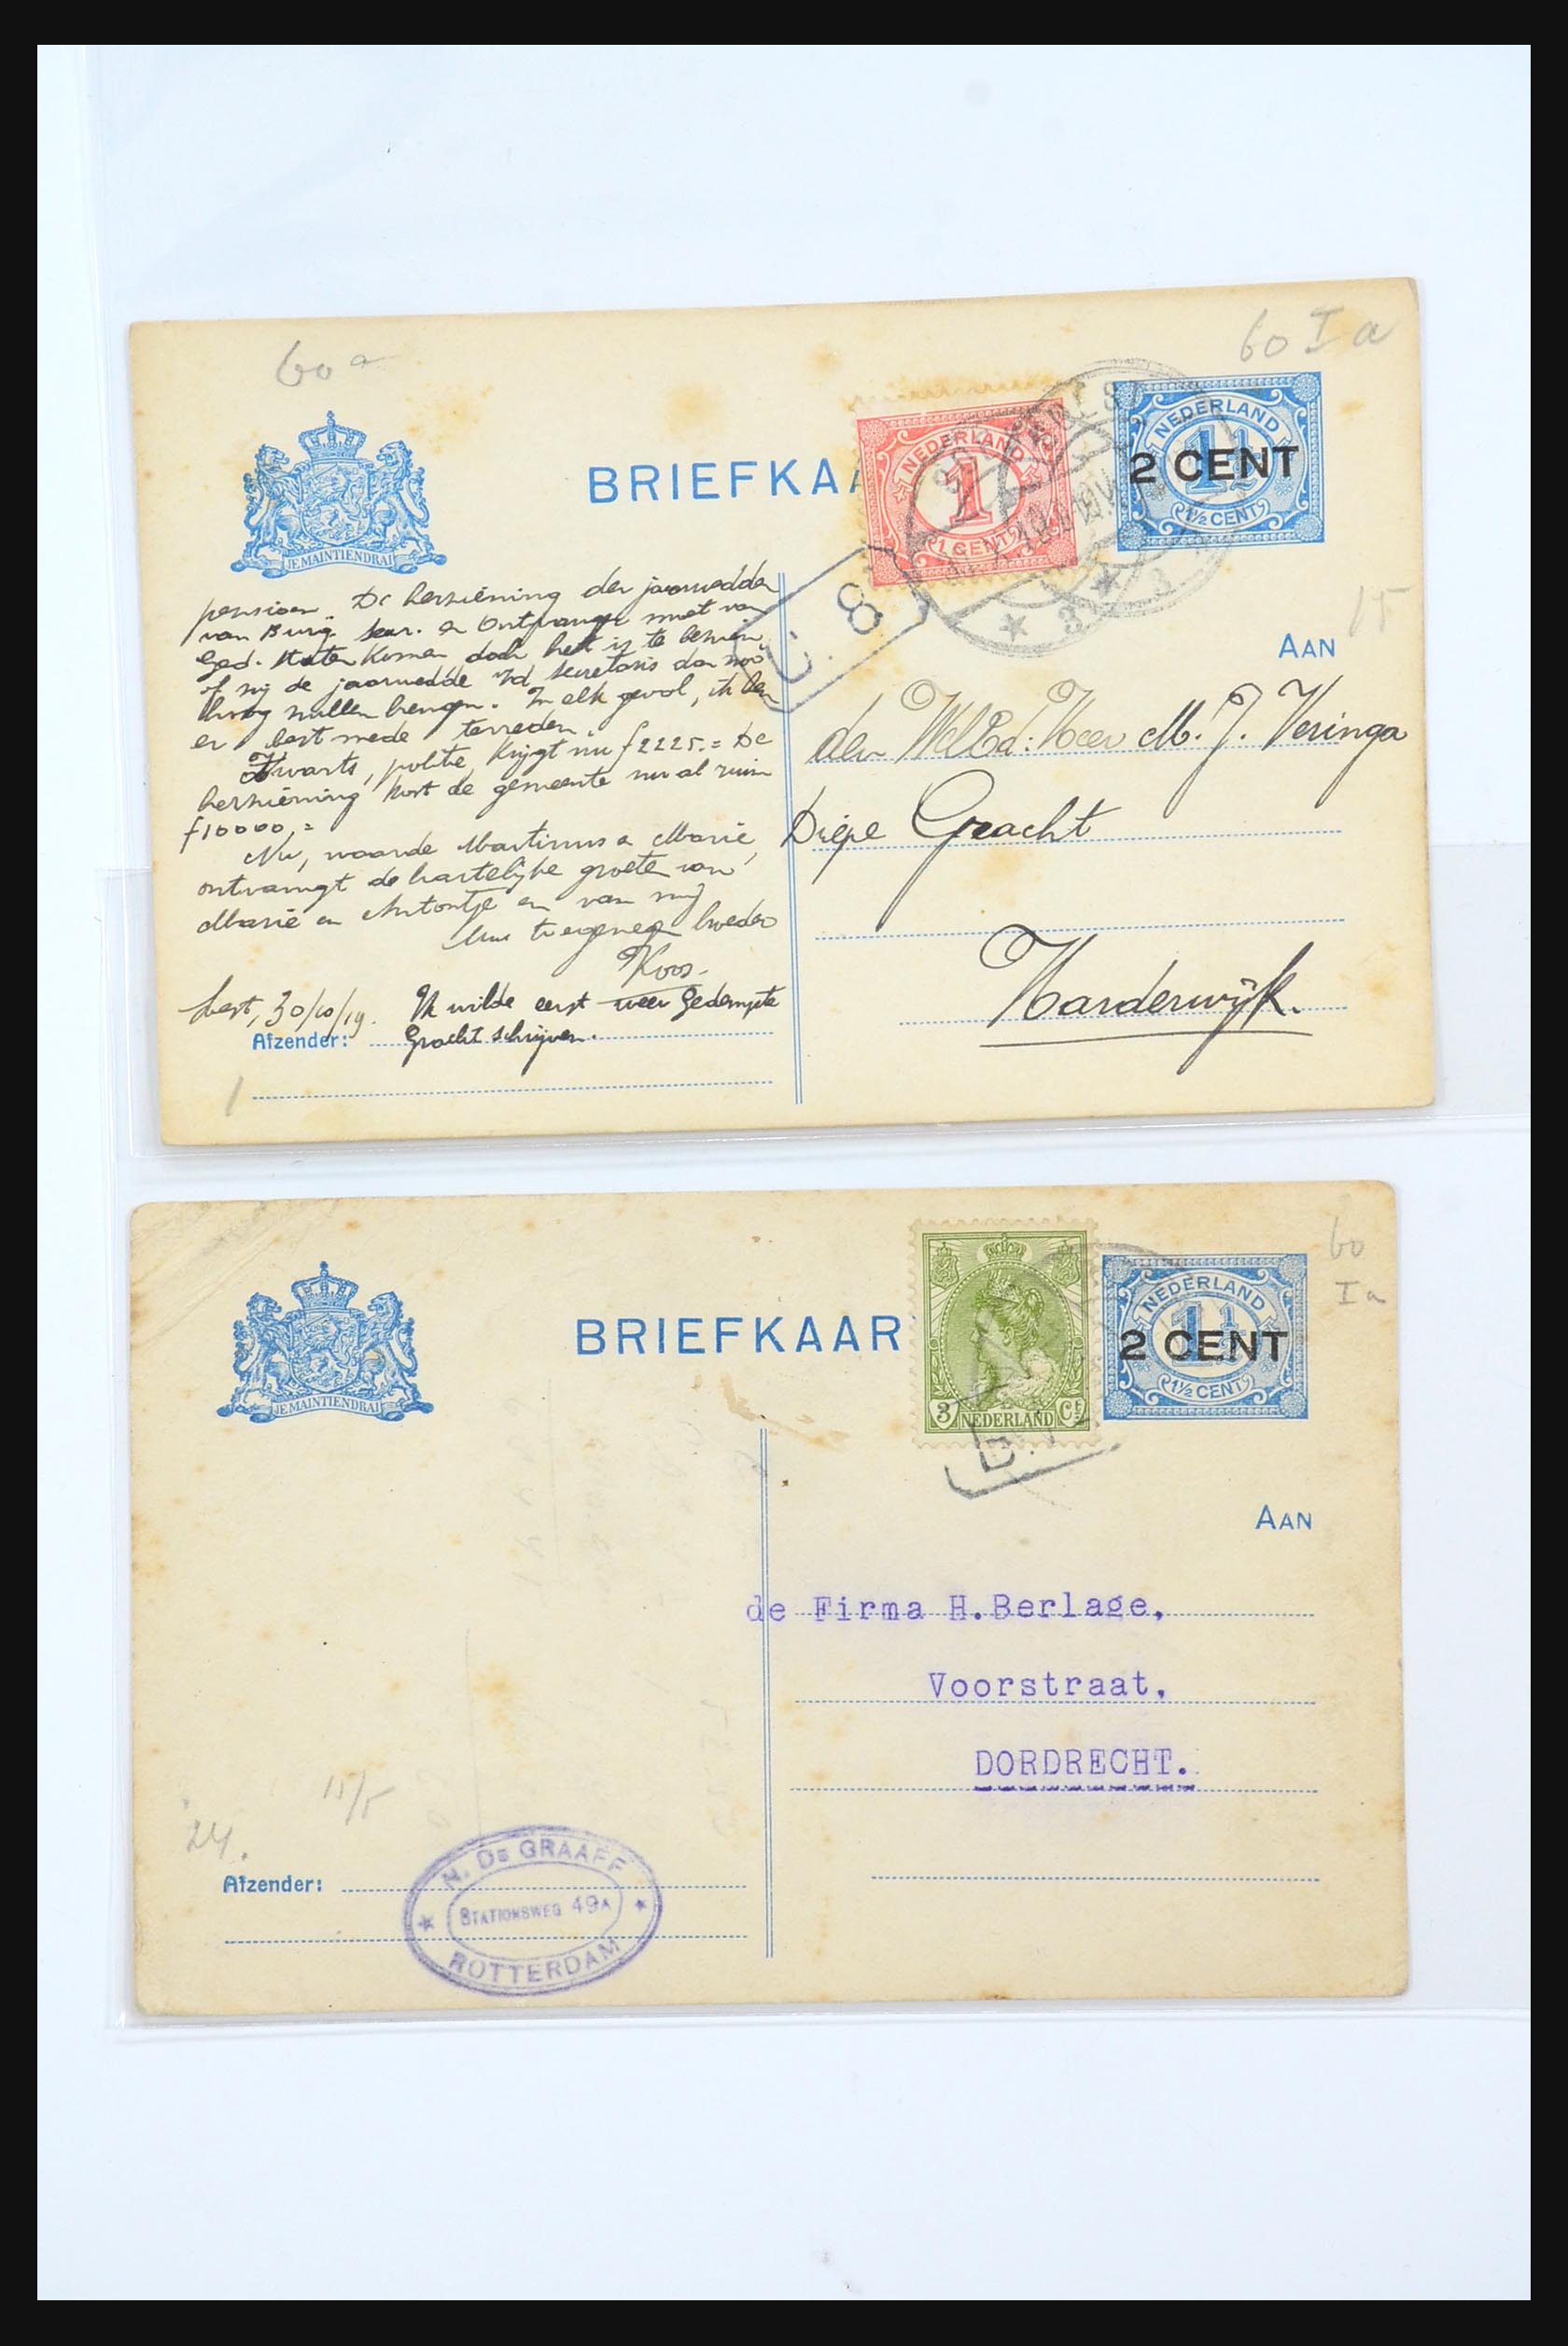 60 a
60 I a
BRIEFKAA
JE MAINTIENDRAI
NEDERLAND
1
1 CENT
NEDERLAND
1½
2 CENT
1½ CENT
3
3
8
15
AAN
pensioen. De herziening der jaarwedden
van Burg. Secr. en Ontvanger moet van
Ged. Staten komen doch het is te bezien,
of zij de jaarwedde v/d secretaris dan
hoog zullen brengen. In elk geval, ik ben
er best mede tevreden.
Zwarts, politie, krijgt nu f 2225.= De
herziening kost de gemeente nu al ruim
f 10000,=
Nu, waarde Martinus en Marie,
ontvangt de hartelijke groeten van
Marie en Antontje en van mij
Uw toegenegen broeder
Koos.
Best, 30/10/19. Ik wilde eerst weer Gedempte
Afzender: Gracht schrijven.
den WelEd. Heer M. J. Veringa
Diepe Gracht
Harderwijk.
60
I a
BRIEFKAAR
JE MAINTIENDRAI
3 NEDERLAND Ct
NEDERLAND
1½
2 CENT
1½ CENT
AAN
de Firma H.Berlage,
Voorstraat,
DORDRECHT.
15/5
24.
Afzender:
N. De GRAAFF
STATIONSWEG 49A
ROTTERDAM